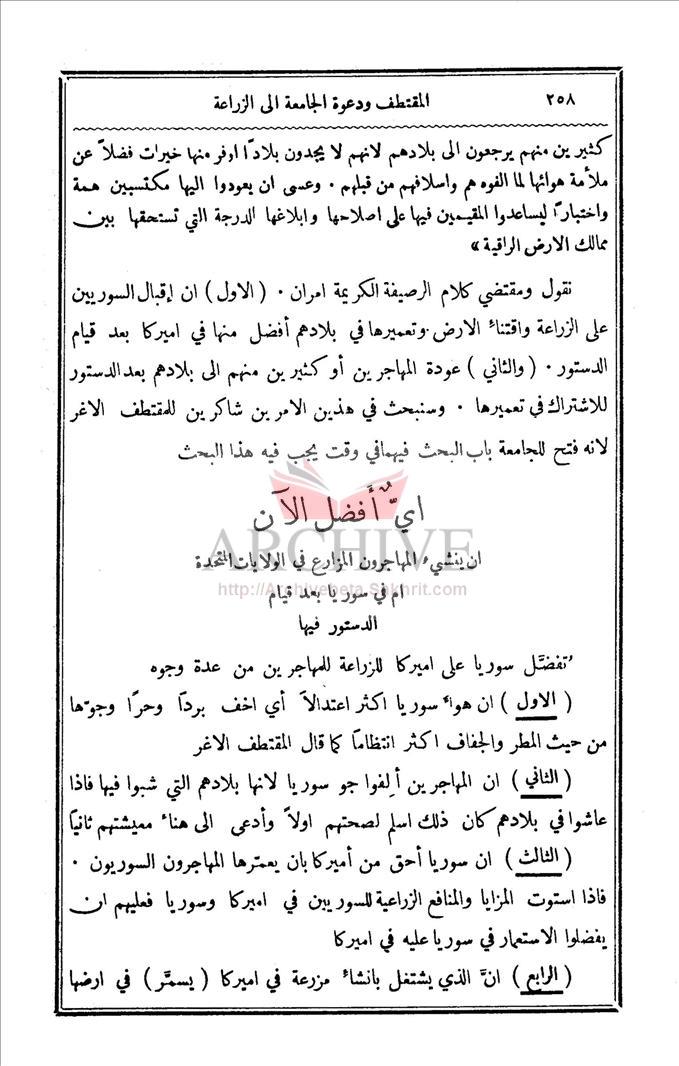 ٢٥٨ المقتطف ودعوة الجامعة الى الزراعة
كثيرين منهم يرجعون الى بلادهم لانهم لا يجدون بلادًا اوفر منها خيرات فضلاً عن
ملأمة هوائها لما الفوه هم واسلافهم من قبلهم ٠ وعسى ان يعودوا اليها مكتسبين همة
واختبارًا ليساعدوا المقيمين فيها على اصلاحها وابلاغها الدرجة التي تستحقها بين
ممالك الارض الراقية »
نقول ومقتضي كلام الرصيفة الكريمة امران ٠ ( الاول ) ان إقبال السوريين
على الزراعة واقتناء الارض وتعميرها في بلادهم أفضل منها في اميركا بعد قيام
الدستور ٠ ( والثاني ) عودة المهاجرين أو كثيرين منهم الى بلادهم بعد الدستور
للاشتراك في تعميرها ٠ وسنبحث في هذين الامرين شاكرين للمقتطف الاغر
لانه فتح للجامعة باب البحث فيهما في وقت يجب فيه هذا البحث
ايٌّ أَفضل الآن
ARCHIVE
ان ينشيء المهاجرون المزارع في الولايات المتحدة
http://Archivebeta.Sakhrit.com
ام في سوريا بعد قيام
الدستور فيها
تُفضَّل سوريا على اميركا للزراعة للمهاجرين من عدة وجوه
( الاول ) ان هواء سوريا اكثر اعتدالاً أي اخف بردًا وحرًا وجوّها
من حيث المطر والجفاف اكثر انتظامًا كما قال المقتطف الاغر
( الثاني ) ان المهاجرين أَلِفوا جو سوريا لانها بلادهم التي شبوا فيها فاذا
عاشوا في بلادهم كان ذلك اسلم لصحتهم اولاً وأدعى الى هناء معيشتهم ثانيًا
( الثالث ) ان سوريا أحق من أميركا بان يعمّرها المهاجرون السوريون ٠
فاذا استوت المزايا والمنافع الزراعية للسوريين في اميركا وسوريا فعليهم ان
يفضلوا الاستعمار في سوريا عليه في اميركا
( الرابع ) انَّ الذي يشتغل بانشاء مزرعة في اميركا ( يسمَّر ) في ارضها